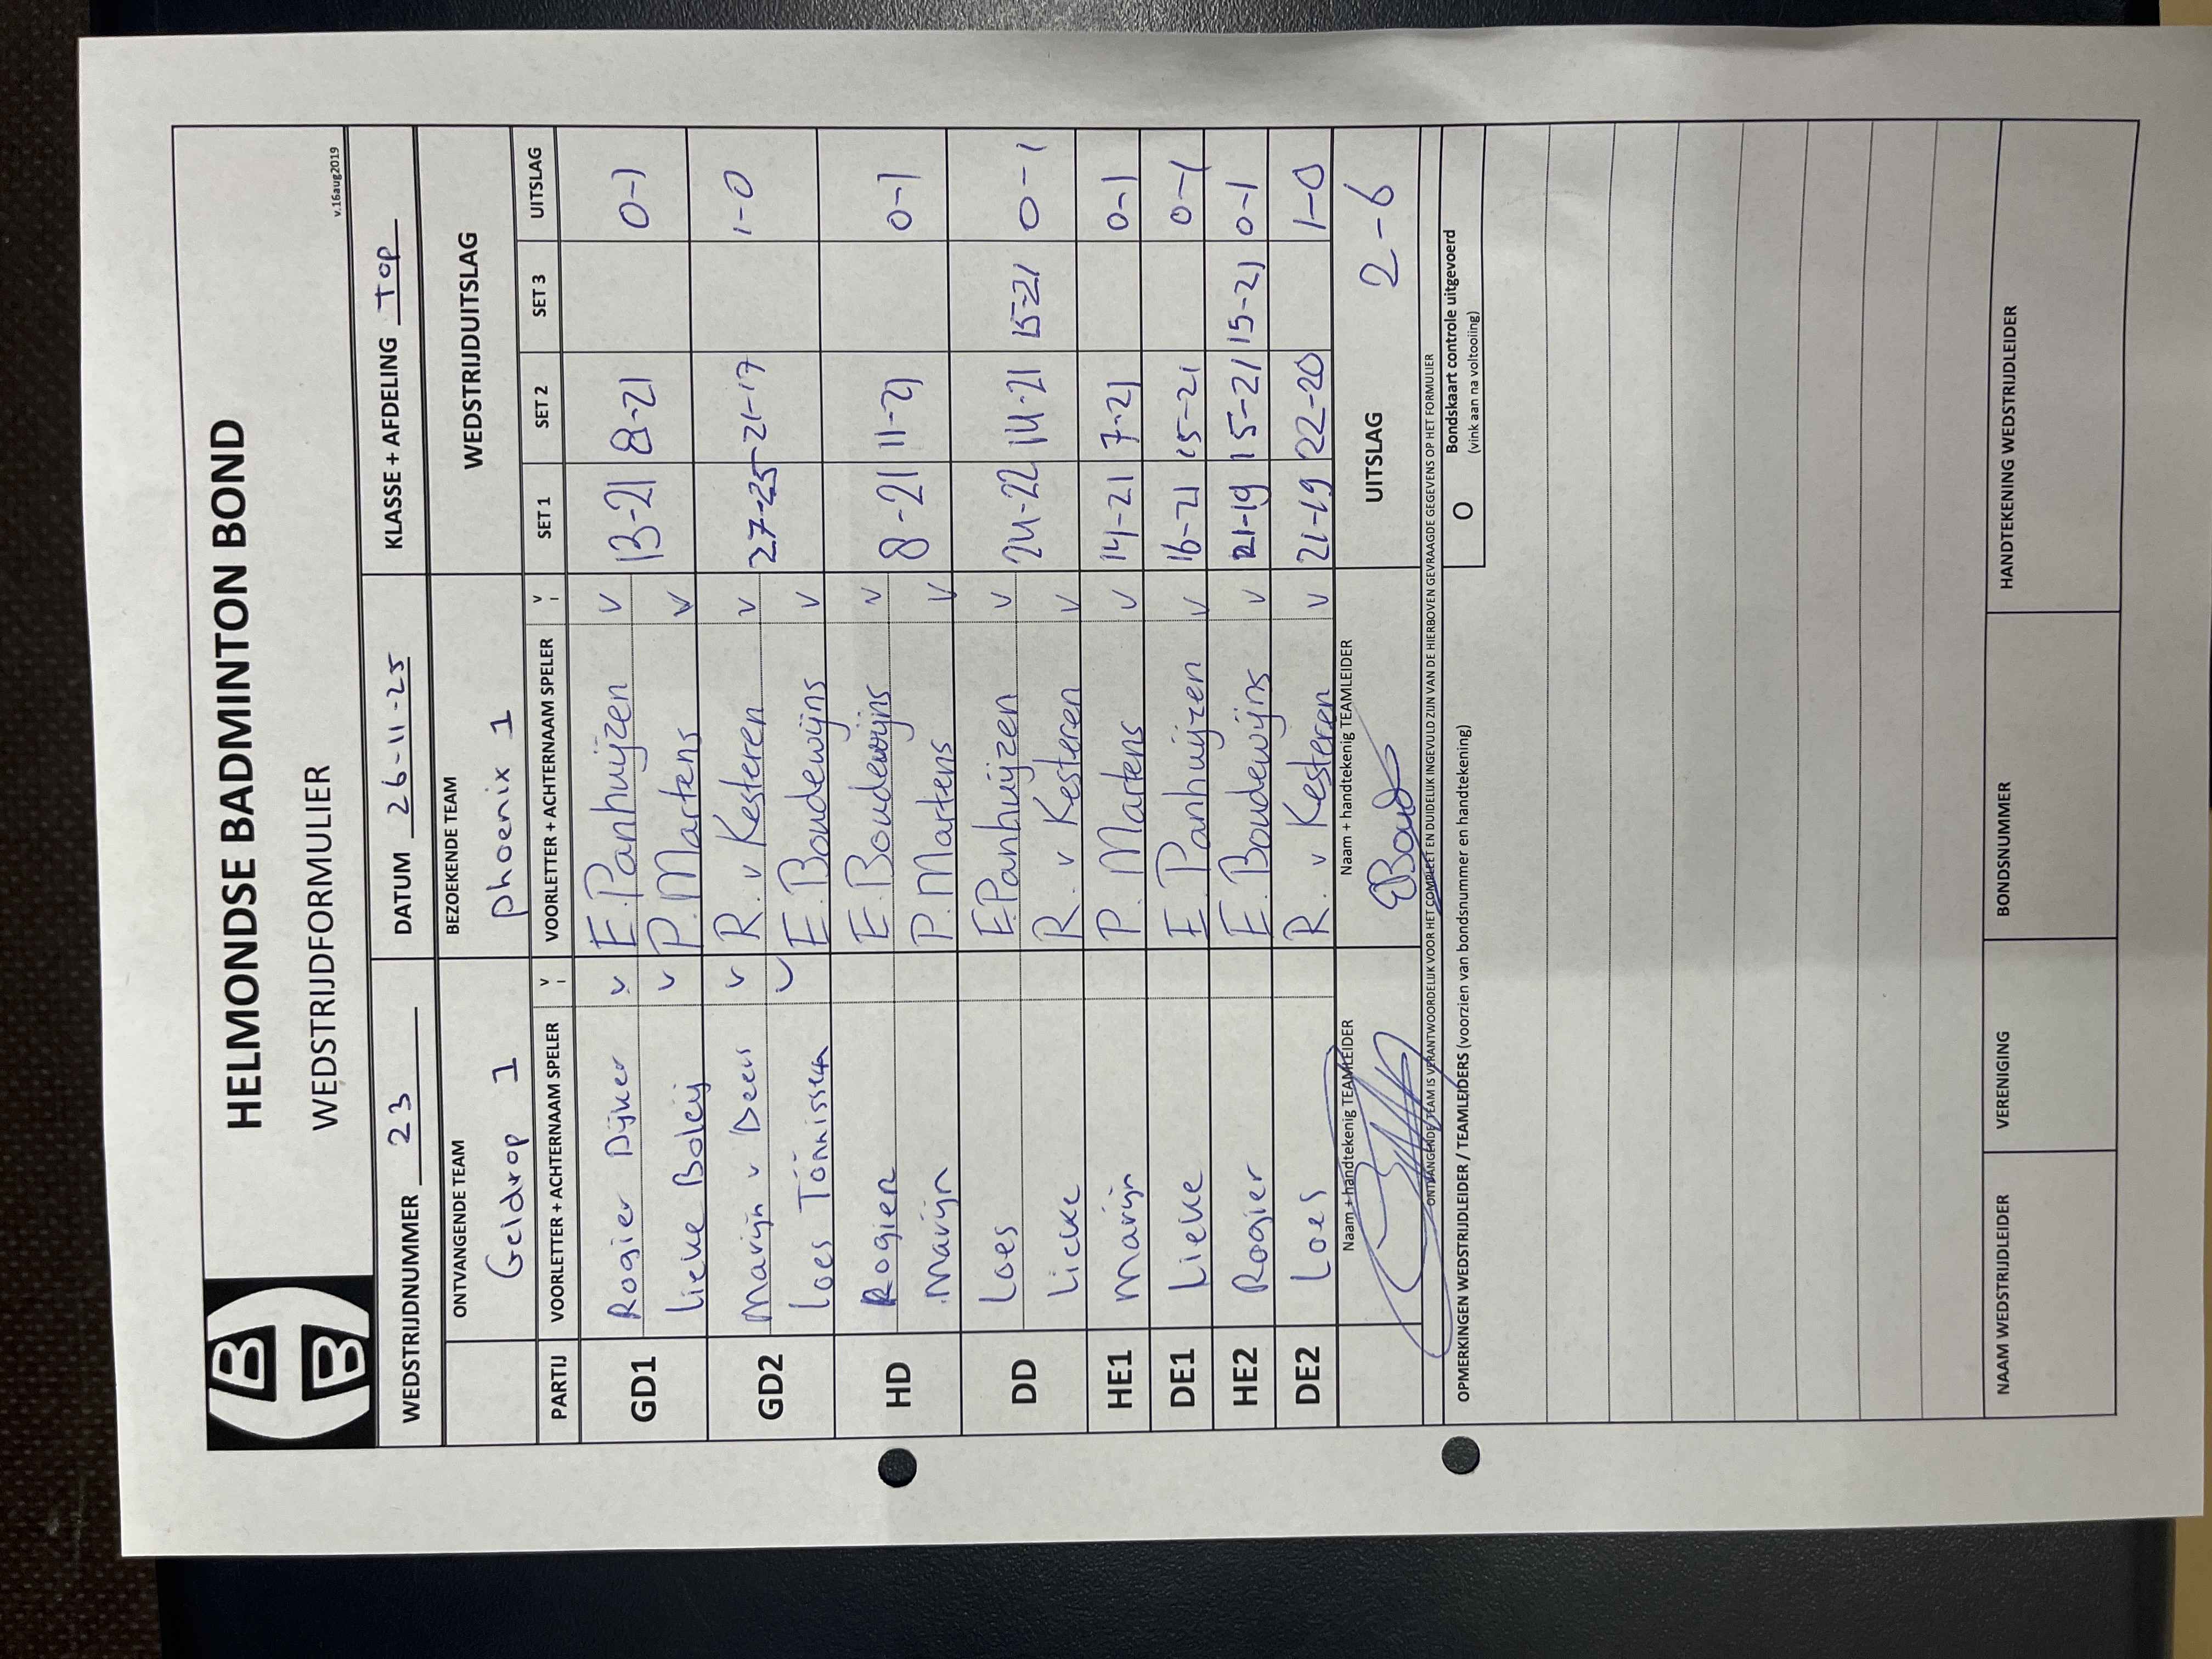 HELMONDSE BADMINTON BOND
WEDSTRIJDFORMULIER
v.16aug2019
WEDSTRIJDNUMMER 23 DATUM 26-11-25 KLASSE + AFDELING Top
ONTVANGENDE TEAM BEZOEKENDE TEAM WEDSTRIJDUITSLAG
Geldrop 1 phoenix 1
PARTIJ VOORLETTER + ACHTERNAAM SPELER V VOORLETTER + ACHTERNAAM SPELER V SET 1 SET 2 SET 3 UITSLAG
GD1 Rogier Dijker v E. Panhuijzen v 13-21 8-21 0-1
Lieke Boleij v P. Martens v
GD2 Marijn v Deers v R. v Kesteren v 27-25 21-17 1-0
Loes Tönnissen v E. Boudewijns v
HD Rogier E. Boudewijns v 8-21 11-21 0-1
Marijn P. Martens v
DD Loes E. Panhuijzen v 24-22 14-21 15-21 0-1
Lieke R. v Kesteren v
HE1 Marijn P. Martens v 14-21 7-21 0-1
DE1 Lieke E. Panhuijzen v 16-21 15-21 0-1
HE2 Rogier E. Boudewijns v 21-19 15-21 15-21 0-1
DE2 Loes R. v Kesteren v 21-19 22-20 1-0
Naam + handtekenig TEAMLEIDER Naam + handtekenig TEAMLEIDER UITSLAG 2-6
EBoud
ONTVANGENDE TEAM IS VERANTWOORDELIJK VOOR HET COMPLEET EN DUIDELIJK INGEVULD ZIJN VAN DE HIERBOVEN GEVRAAGDE GEGEVENS OP HET FORMULIER
OPMERKINGEN WEDSTRIJDLEIDER / TEAMLEIDERS (voorzien van bondsnummer en handtekening) O Bondskaart controle uitgevoerd
(vink aan na voltooiing)
NAAM WEDSTRIJDLEIDER VERENIGING BONDSNUMMER HANDTEKENING WEDSTRIJDLEIDER
B
B